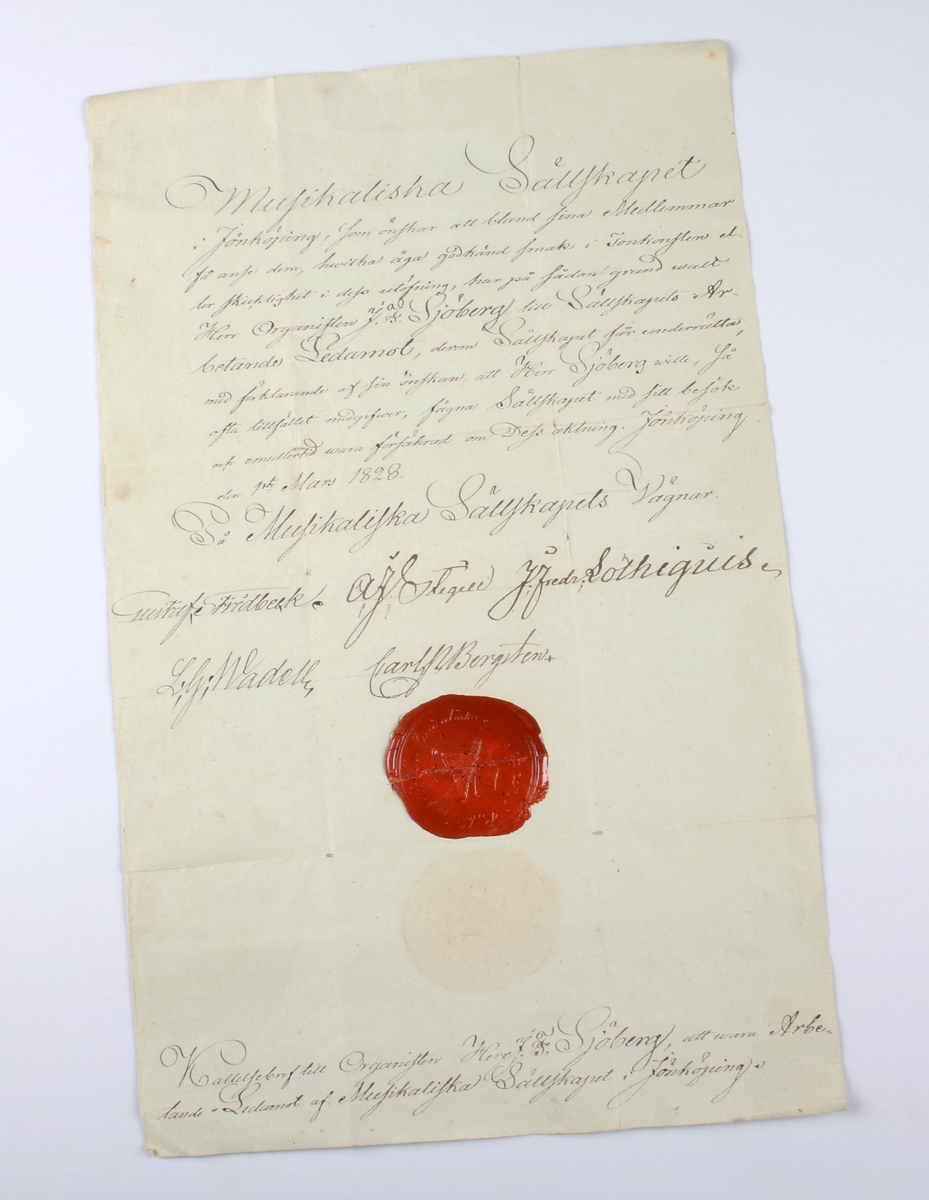 Musikaliska Sällskapet
i Jönköping, som önskar att bland sina Medlemmar
få anse dem, hwilka äga godkänd smak i Tonkonsten el-
ler skicklighet i dess utöfning, har på sådan grund walt
Herr Organisten J. Sjöberg till Sällskapets Ar-
betande Ledamot, derom Sällskapet får underrätta,
med förklarande af sin önskan, att Herr Sjöberg wille, så
ofta tillfället medgifwer, fägna Sällskapet med sitt besök
och emedlertid wara försäkrad om Dess aktning. Jönköping
den 1ste Mars 1828.
På Musikaliska Sällskapets Vägnar.
Gustaf Fridbeck. A.J. Stegell J. Fredr. Lothiguis.
L.G. Wadell, Carl P. Bergsten.
Kallelsebref till Organisten Herr J. F. Sjöberg, att wara Arbe-
tande Ledamot af Musikaliska Sällskapet i Jönköping.